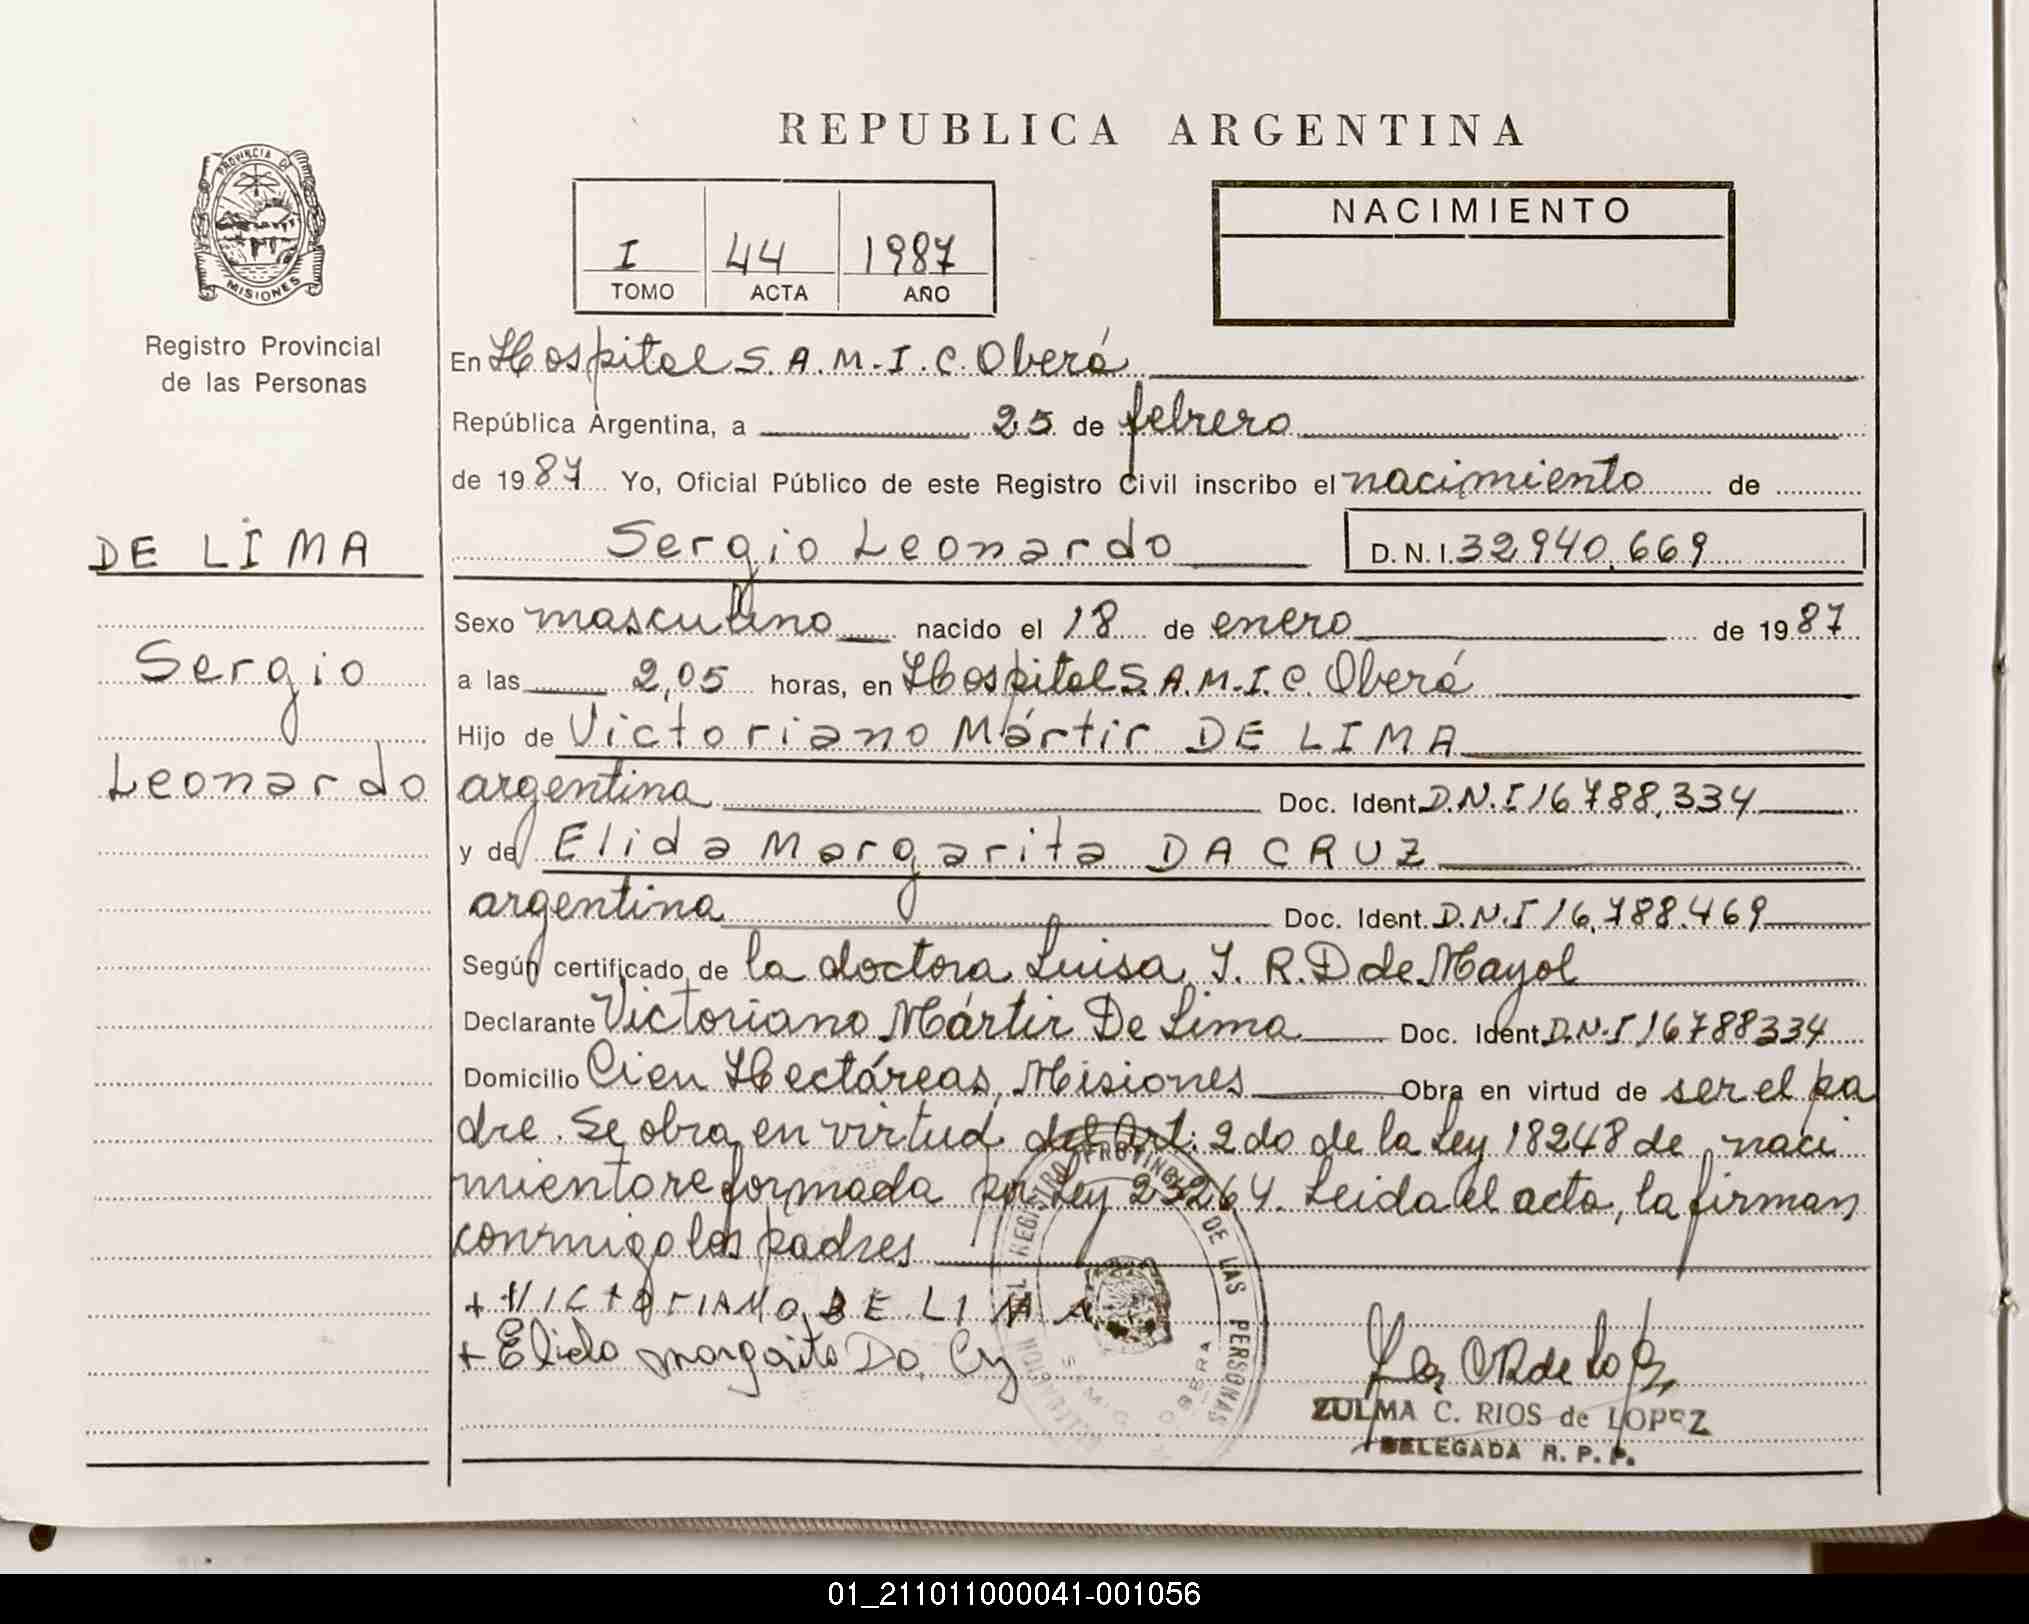 REPUBLICA ARGENTINA
PROVINCIA DE
MISIONES
Registro Provincial
de las Personas
DE LIMA
Sergio
Leonardo
I 44 1987
TOMO ACTA AÑO
NACIMIENTO
En Hospital S.A.M.I.C. Oberá
República Argentina, a 25 de febrero
de 1987 Yo, Oficial Público de este Registro Civil inscribo el nacimiento de
Sergio Leonardo D.N.I. 32.940.669
Sexo masculino nacido el 18 de enero de 1987
a las 2,05 horas, en Hospital S.A.M.I.C. Oberá
Hijo de Victoriano Mártir DE LIMA
argentina Doc. Ident. D.N.I 16788.334
y de Elida Margarita DA CRUZ
argentina Doc. Ident. D.N.I 16.788.469
Según certificado de la doctora Luisa Y. R. D de Mayol
Declarante Victoriano Mártir De Lima Doc. Ident. D.N.I 16788334
Domicilio Cien Hectáreas, Misiones Obra en virtud de ser el pa
dre. Se obra en virtud del Art: 2do de la Ley 18248 de naci
miento reformada por Ley 23264. Leida el acta, la firman
conmigo los padres
+ VICtOrIANO DE LIMA
+ Elida margarita Da
REGISTRO PROVINCIAL DE LAS PERSONAS
S.A.M.I.C. OBERA
ZULMA C. RIOS de LOPEZ
DELEGADA R. P. P.
01_211011000041-001056